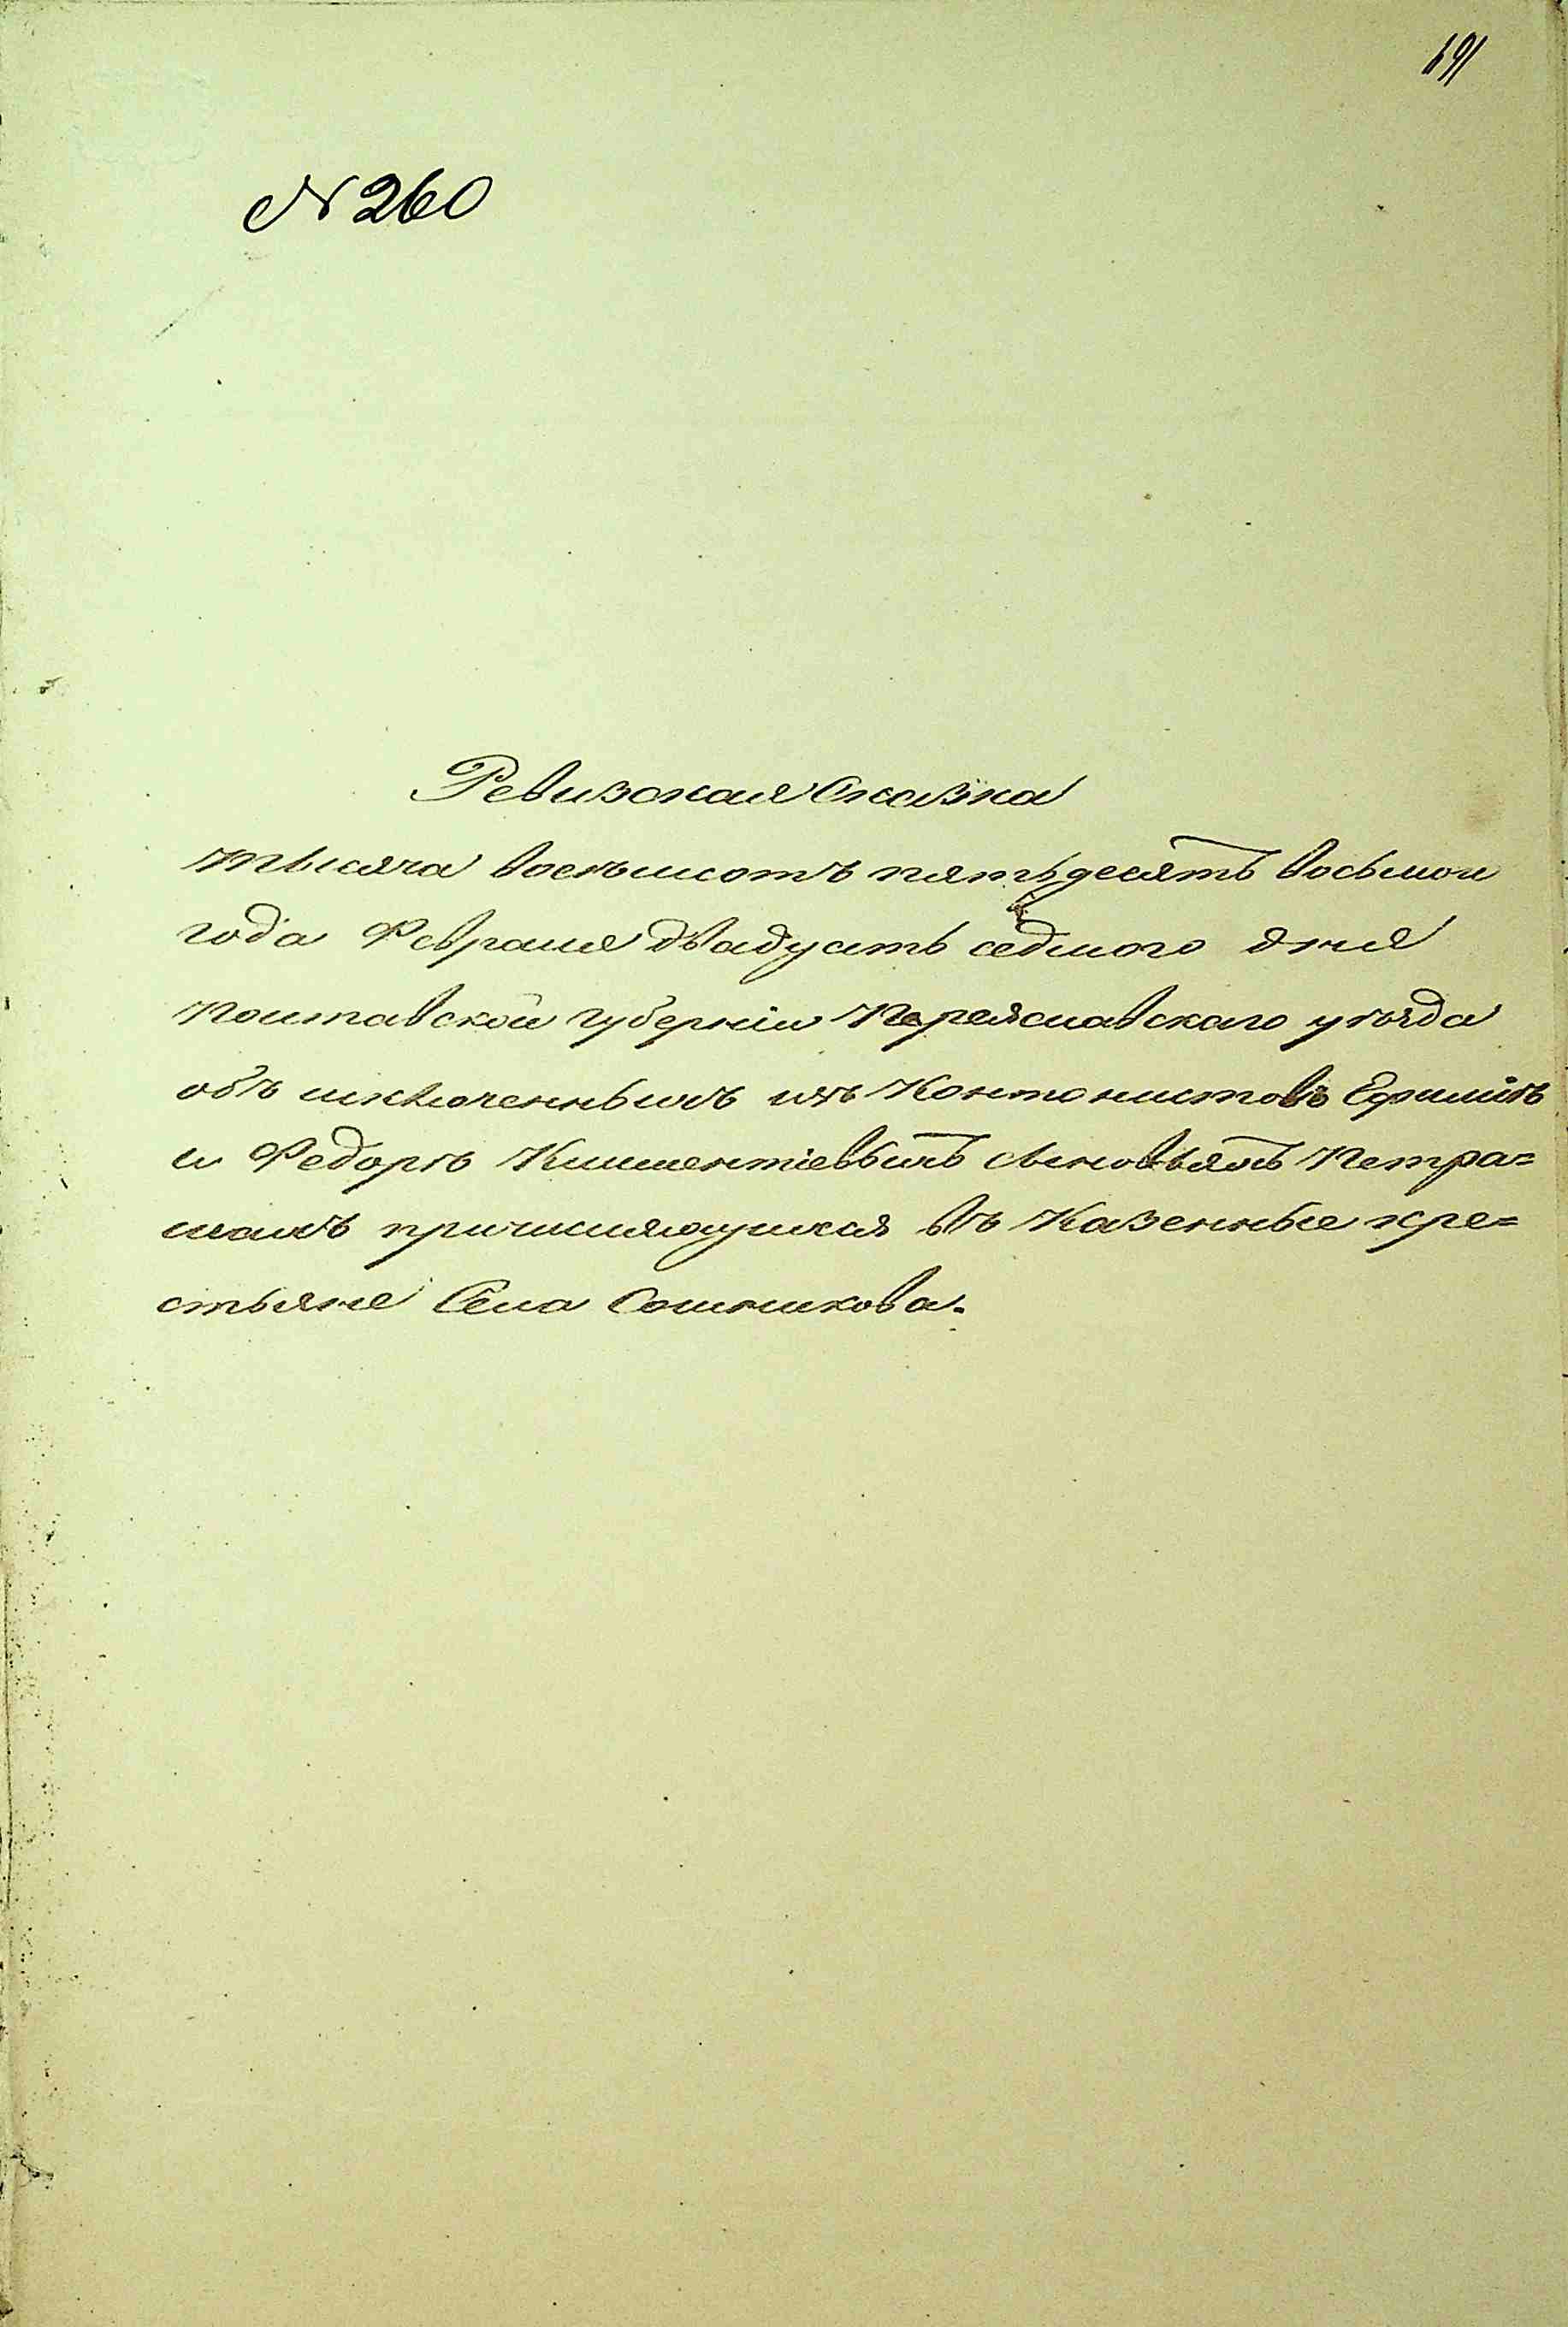 191
N 260
Ревизская Сказка
тысяча восемьсотъ пятьдесятъ восьмои
года Февраля двадцать седмого дня
Полтавской губерніи Переяславскаго уѣзда
объ изключенныхъ изъ Контонистовъ Ефимѣ
и Федорѣ Климентіевыхъ сыновьяхъ Петра=
шахъ причисляющихся въ Казенные кре=
стьяне Села Сошникова.